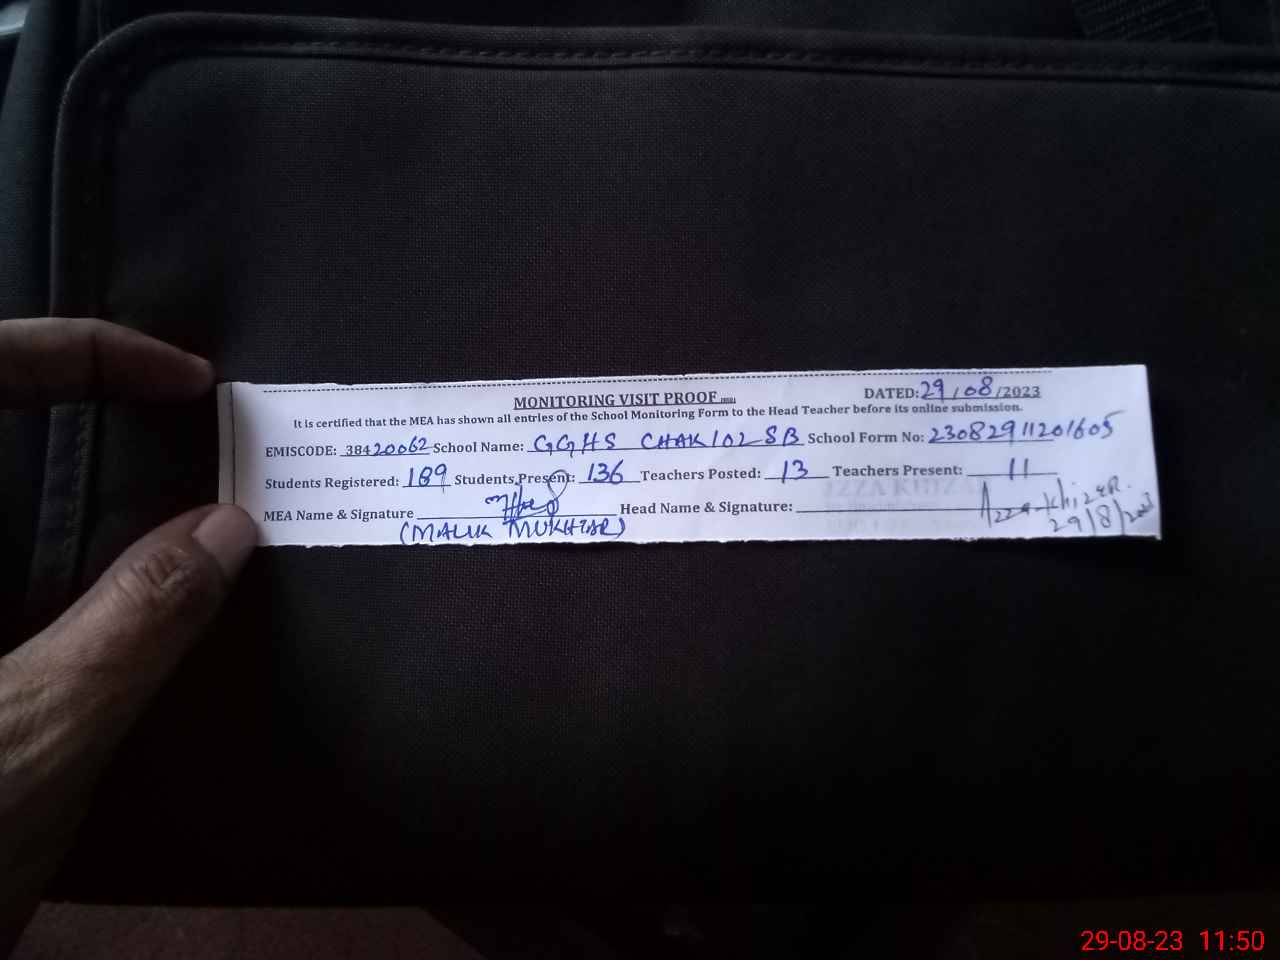 MONITORING VISIT PROOF
DATED: 29/08/2023
It is certified that the MEA has shown all entries of the School Monitoring Form to the Head Teacher before its online submission.
EMISCODE: 38420062 School Name: GGHS CHAK 102 SB School Form No: 23082911201605
Students Registered: 189 Students Present: 136 Teachers Posted: 13 Teachers Present: 11
MEA Name & Signature Head Name & Signature: Azza Khizar.
(MALIK MUKHTAR) 29/8/2023
29-08-23 11:50